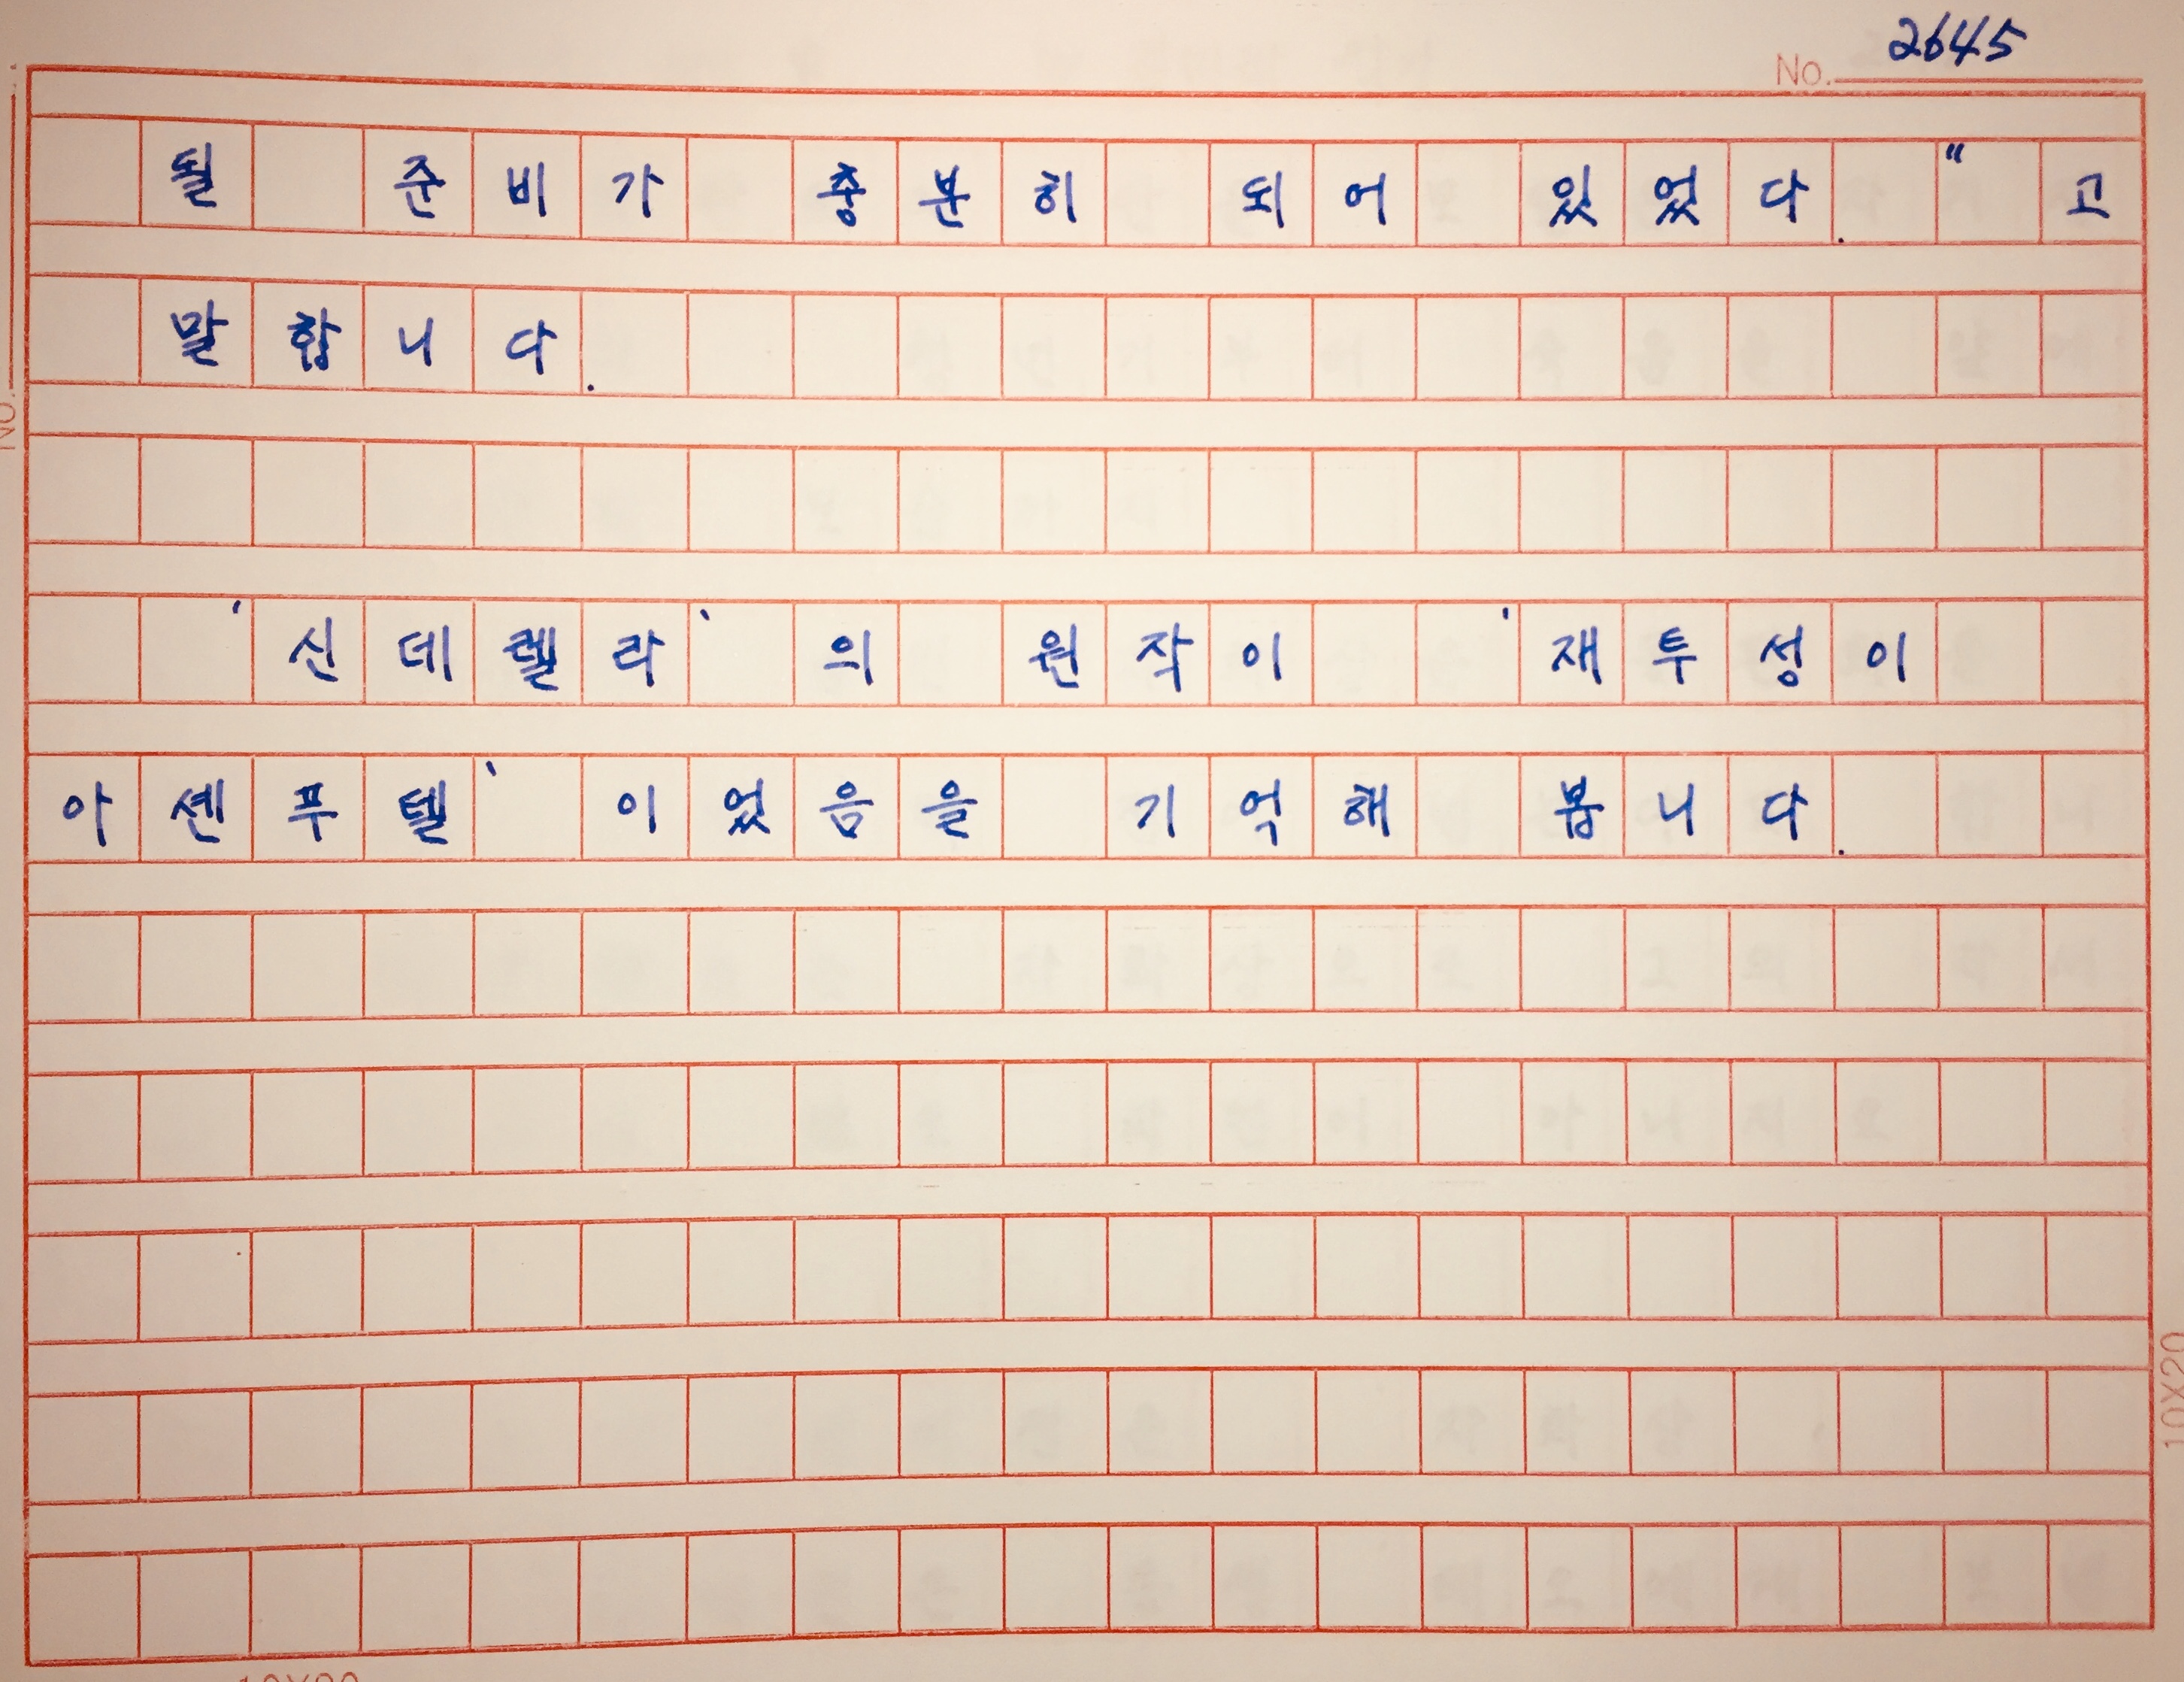 No. 2645
될 준비가 충분히 되어 있었다." 고
말합니다.
'신데렐라'의 원작이 '재투성이
아센푸텔'이었음을 기억해 봅니다.
NO.
10X20
10X20